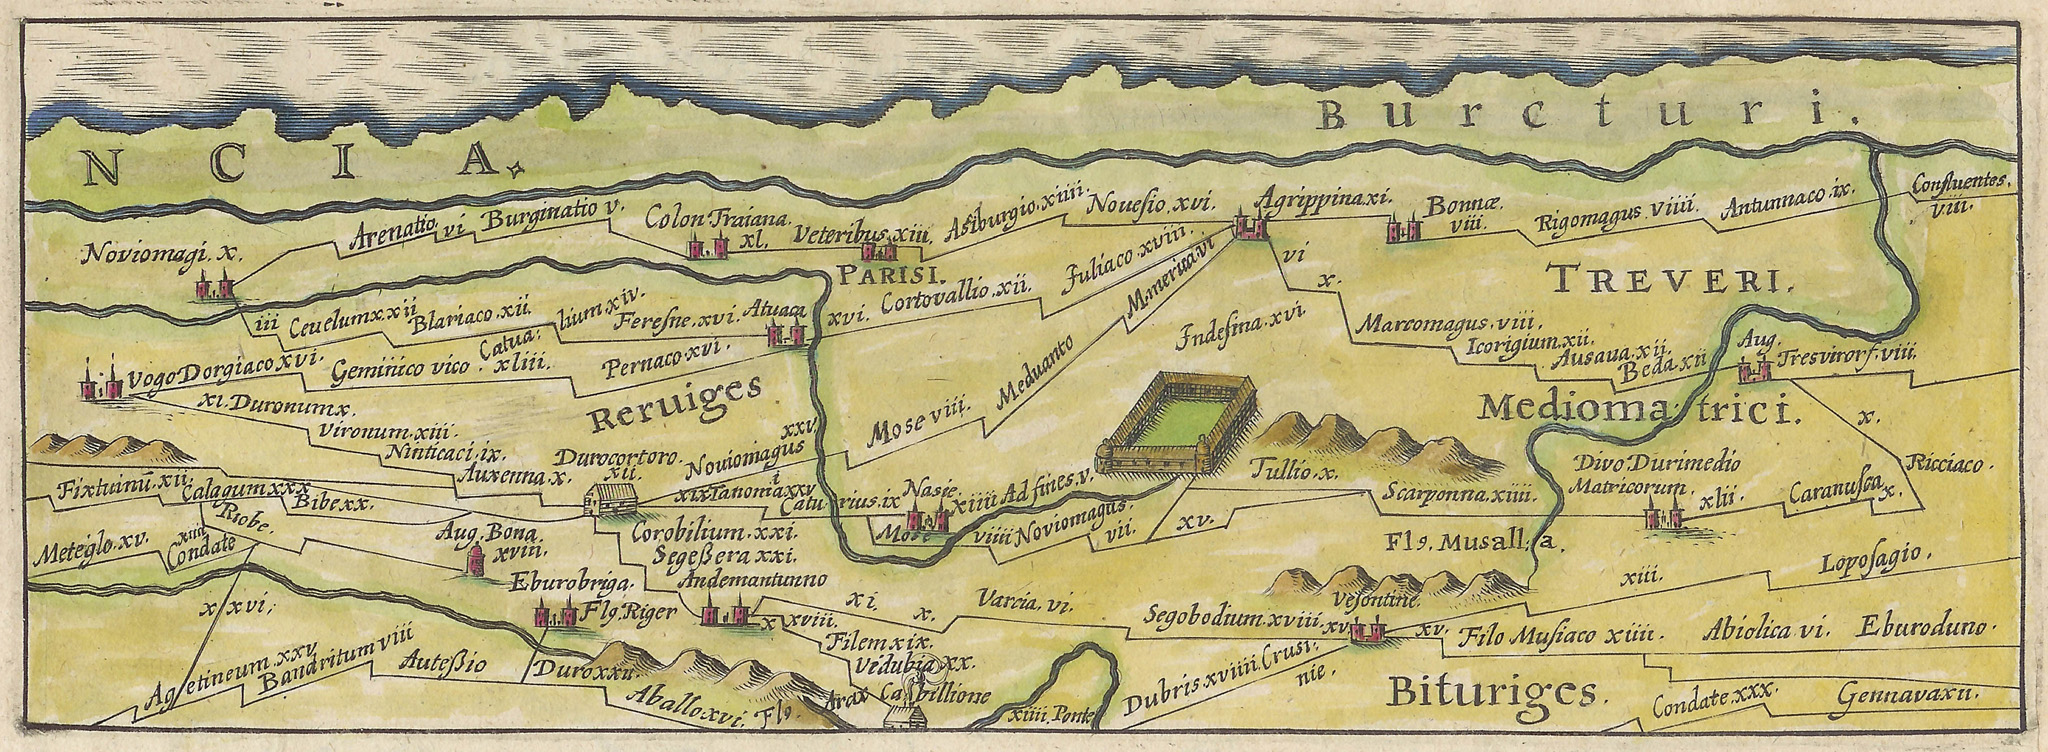 Burcturi.
NCIA.
Arenatio. vi
Burginatio v.
Colon Traiana.
xl.
Veteribus. xiii.
Asiburgio. xiiii.
Novesio. xvi.
Agrippina xi.
Bonnæ
viii.
Rigomagus. viiii.
Antunnaco. ix.
Confluentes.
viii.
Noviomagi. x.
PARISI.
TREVERI.
iii
Ceuelum x. xii
Blariaco. xii.
Catua:
lium. xiv.
Feresne. xvi.
Atuaca
xvi.
Cortovallio. xii.
Juliaco. xviii.
M. merica. vi
vi
x.
Indesina. xvi
Marcomagus. viii.
Icorigium. xii.
Ausaua. xii.
Beda. xii
Aug.
Tresvirorſ. viii.
Vogo Dorgiaco xvi.
Geminico vico. xliii.
Pernaco. xvi.
Reruiges
Meduanto
Mose viii.
Mediomatrici.
xi. Duronum x.
Vironum. xiii.
Ninticaci. ix.
Auxenna. x.
Durocortoro.
xii.
Noviomagus
xxv
Tullio. x.
Scarponna. xiiii.
Divo Durimedio
Matricorum.
xlii.
Caranusca
x.
x.
Ricciaco.
Fixtuinū. xii.
Calagum xxx.
Bibe xx.
Riobe.
xix Tanomia xxv.
i
Caturius. ix
Nasie.
xiiii
Ad fines. v.
Mose
viiii
Noviomagus.
vii.
xv.
Fl9. Musalla.
Meteglo. xv.
Condate
xiiii
Aug. Bona.
xviii.
Corobilium. xxi.
Segeßera xxi.
Andemantunno
Eburobriga.
Fl9. Riger
x
xviii.
xi
x.
Varcia. vi.
Segobodium. xviii.
xv
Vesontine.
xv.
xiii.
Loposagio.
Filo Musiaco xiiii.
Abiolica vi.
Eburoduno.
xxvi.
Agetineum. xxv
Bandritum viii
Auteßio
Duro xxii.
Aballo xvi.
Fl9.
Arax
Filem xix.
Vidubia xx.
Caßillione
xiiii. Ponte
Dubris xviiii.
Crusi:
nie.
Bituriges.
Condate xxx.
Gennava xii.